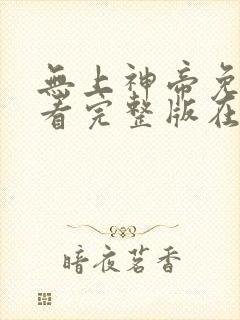 無上神帝免
看完整版在
暗夜茗香